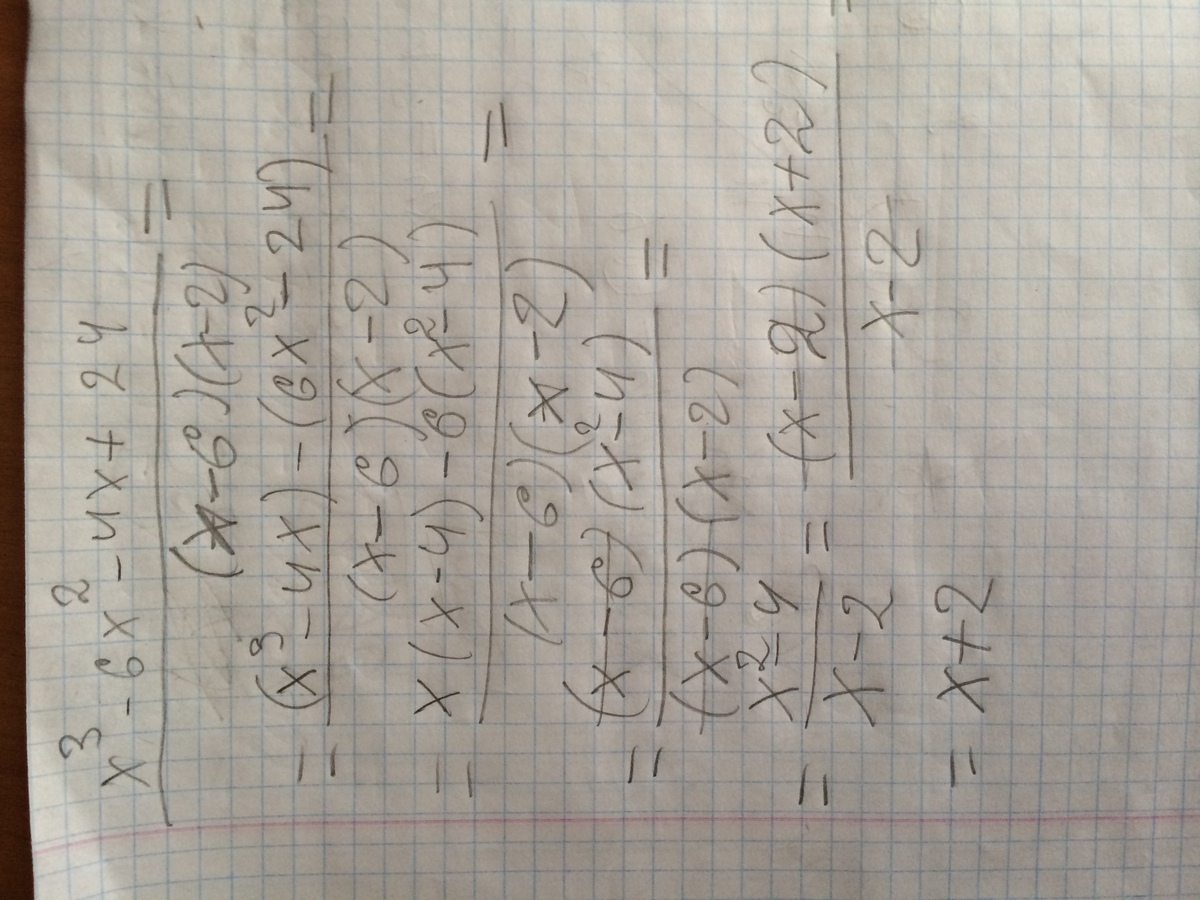 x³ - 6x² - 4x + 24 =
(x-6)(x-2)
= (x³-4x) - (6x²-24) =
(x-6)(x-2)
= x(x-4) - 6(x²-4) =
(x-6)(x-2)
= (x-6)(x²-4) =
(x-6)(x-2)
= x²-4 = (x-2)(x+2) =
x-2 x-2
= x+2